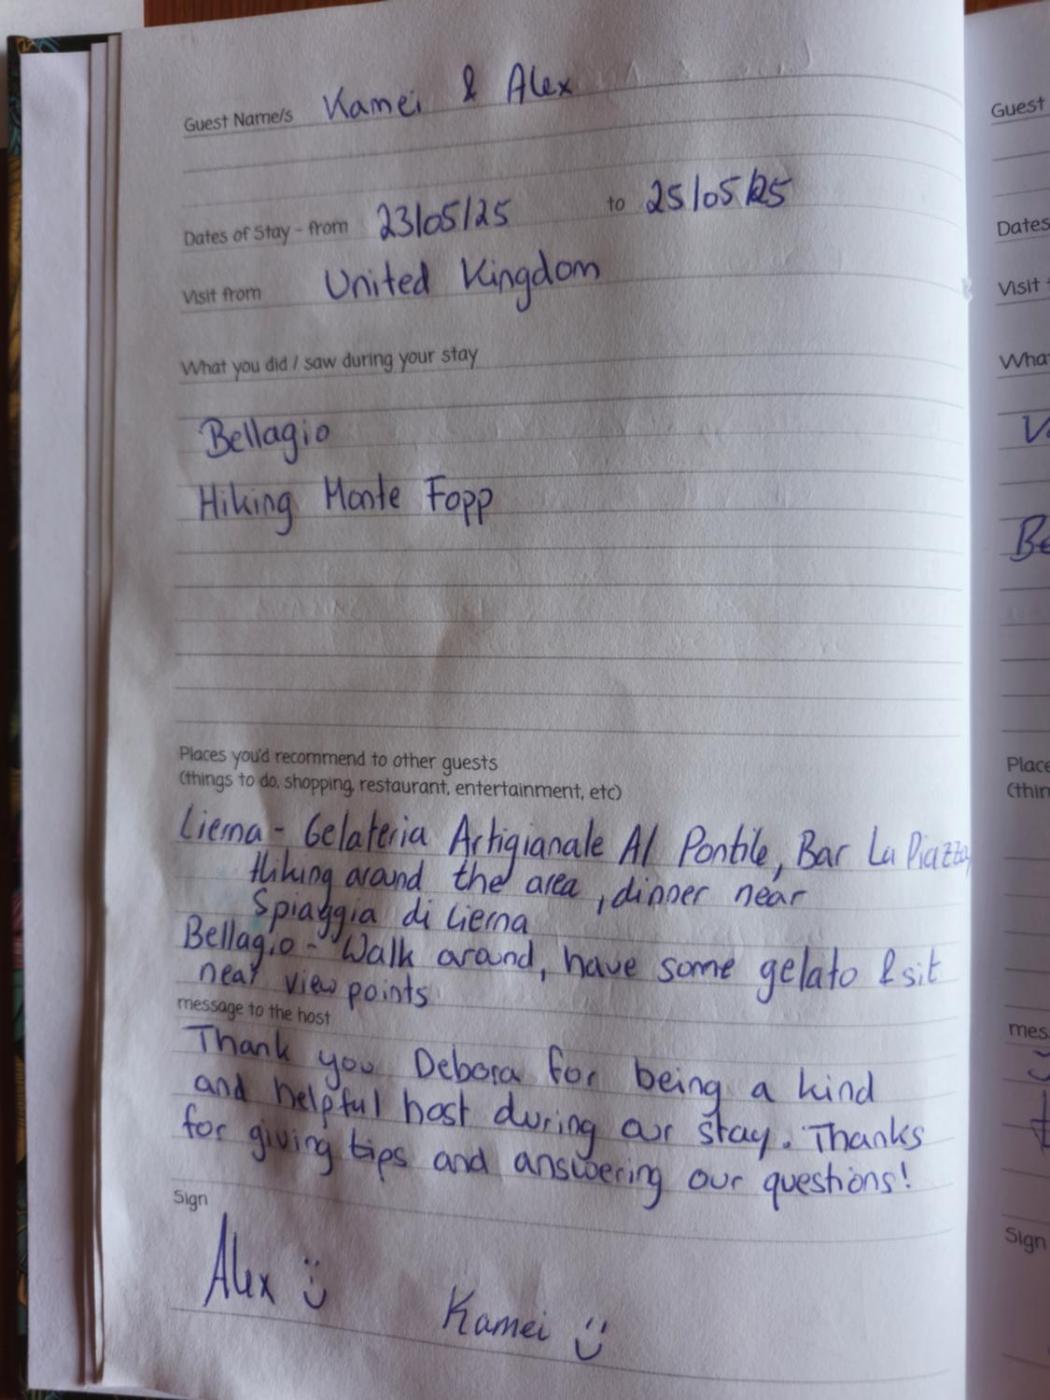 Guest Name/s Kamei & Alex
Dates of Stay - from 23/05/25 to 25/05/25
Visit from United Kingdom
What you did / saw during your stay
Bellagio
Hiking Monte Fopp
Places you'd recommend to other guests
(things to do, shopping, restaurant, entertainment, etc)
Lierna - Gelateria Artigianale Al Pontile, Bar La Piazza,
Hiking around the area, dinner near
Spiaggia di Lierna
Bellagio - Walk around, have some gelato & sit
near view points
message to the host
Thank you Debora for being a kind
and helpful host during our stay. Thanks
for giving tips and answering our questions!
Sign
Alex :)
Kamei :)
Guest
Dates
Visit
Place
(thin
mes
Sign